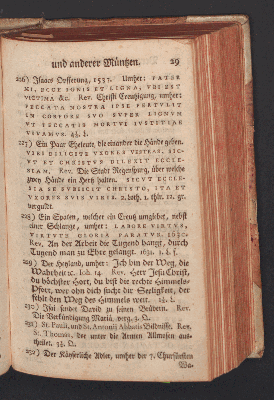 und anderer Müntzen. 29
226) Isaacs Opfferung, 1537. Umher: PATER
MI, ECCE IGNIS ET LIGNA, UBI EST
VICTIMA &c. Rev. Christi Creutzigung, umher:
PECCATA NOSTRA IPSE PERTULIT
IN CORPORE SUO SUPER LIGNUM
UT PECCATIS MORTUI IUSTITIAE
VIVAMUS.
227) Ein Paar Eheleute, die einander die Hände geben.
VIRI DILIGITE UXORES VESTRAS. SIC-
UT ET CHRISTUS DILEXIT ECCLE-
SIAM, Rev. Die Stadt Regenspurg, über welche
zwey Hände ein Hertz halten. SICUT ECCLE-
SIA SE SUBIICIT CHRISTO, ITA ET
UXORES VIRIS SUIS. 2. loth. 1. qtlr. 11. gr.
verguldt.
228) Ein Spaten, welcher ein Creutz umgiebet, nebst
einer Schlange, umher: LABORE VIRTUS,
VIRTUTE GLORIA PARATUR. 1630.
Rev. An der Arbeit die Tugend hangt, durch
Tugend man zu Ehre gelangt. 1631.
229) Der Heyland, umher: Ich bin der Weg, die
Wahrheit rc. Joh. 14. Rev. Herr Jesu Christ,
du höchster Hort, du bist die rechte Himmels-
Pfort, wer ohn dich sucht die Seeligkeit, der
fehlt den Weg des Himmels weit.
230) Isai sendet David zu seinen Brüdern. Rev.
Die Verkündigung Mariä, verg.
231) St. Pauli, und St. Antonii Abbatis Bildnisse. Rev.
St. Thomas, der unter die Armen Allmosen aus-
theilet.
232) Der Käyserliche Adler, umher der 7. Churfürsten
Wa-